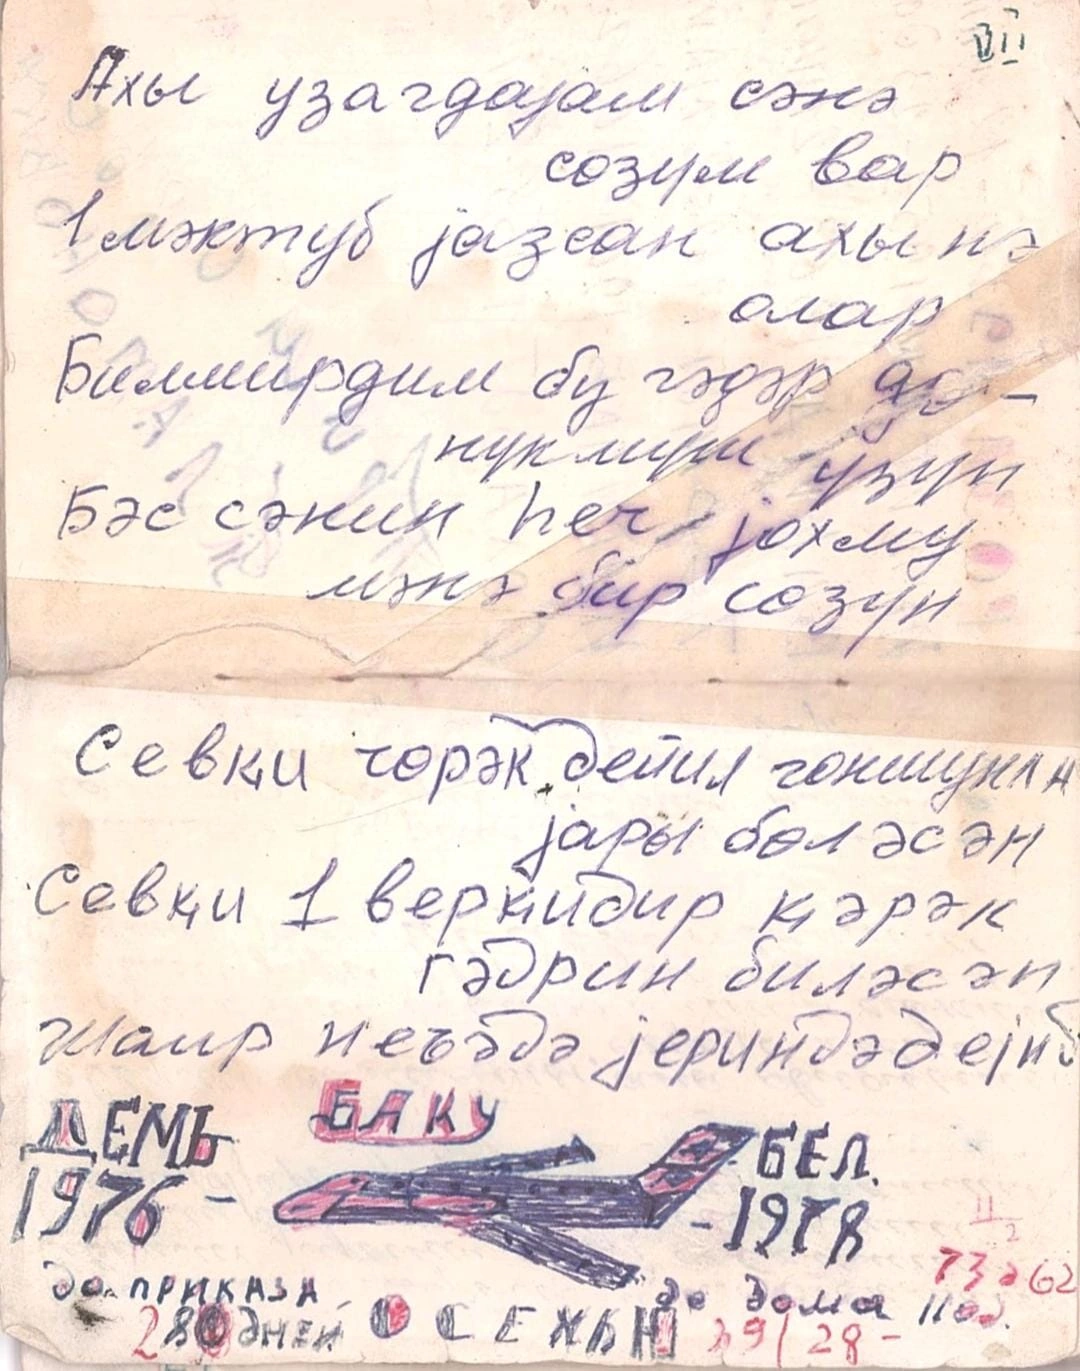 VII
Ахы узагдајам сәнә
созум вар
1 мәктуб јазсан ахы нә
олар
Билмирдим бу гәдәр до-
нукмуш узун
Бәс сәнин һеч јохму
мәнә бир созун
Севҝи чорәк дейил гоншунла
јары боләсән
Севҝи 1 верҝидир ҝәрәк
гәдрин биләсән
Шаир неҹәдә јериндәдејиб
БАКУ
ДЕМЬ БЕЛ.
1976 - - 1978
до приказа до дома под.
280 дней ОСЕНЬ 39/28-